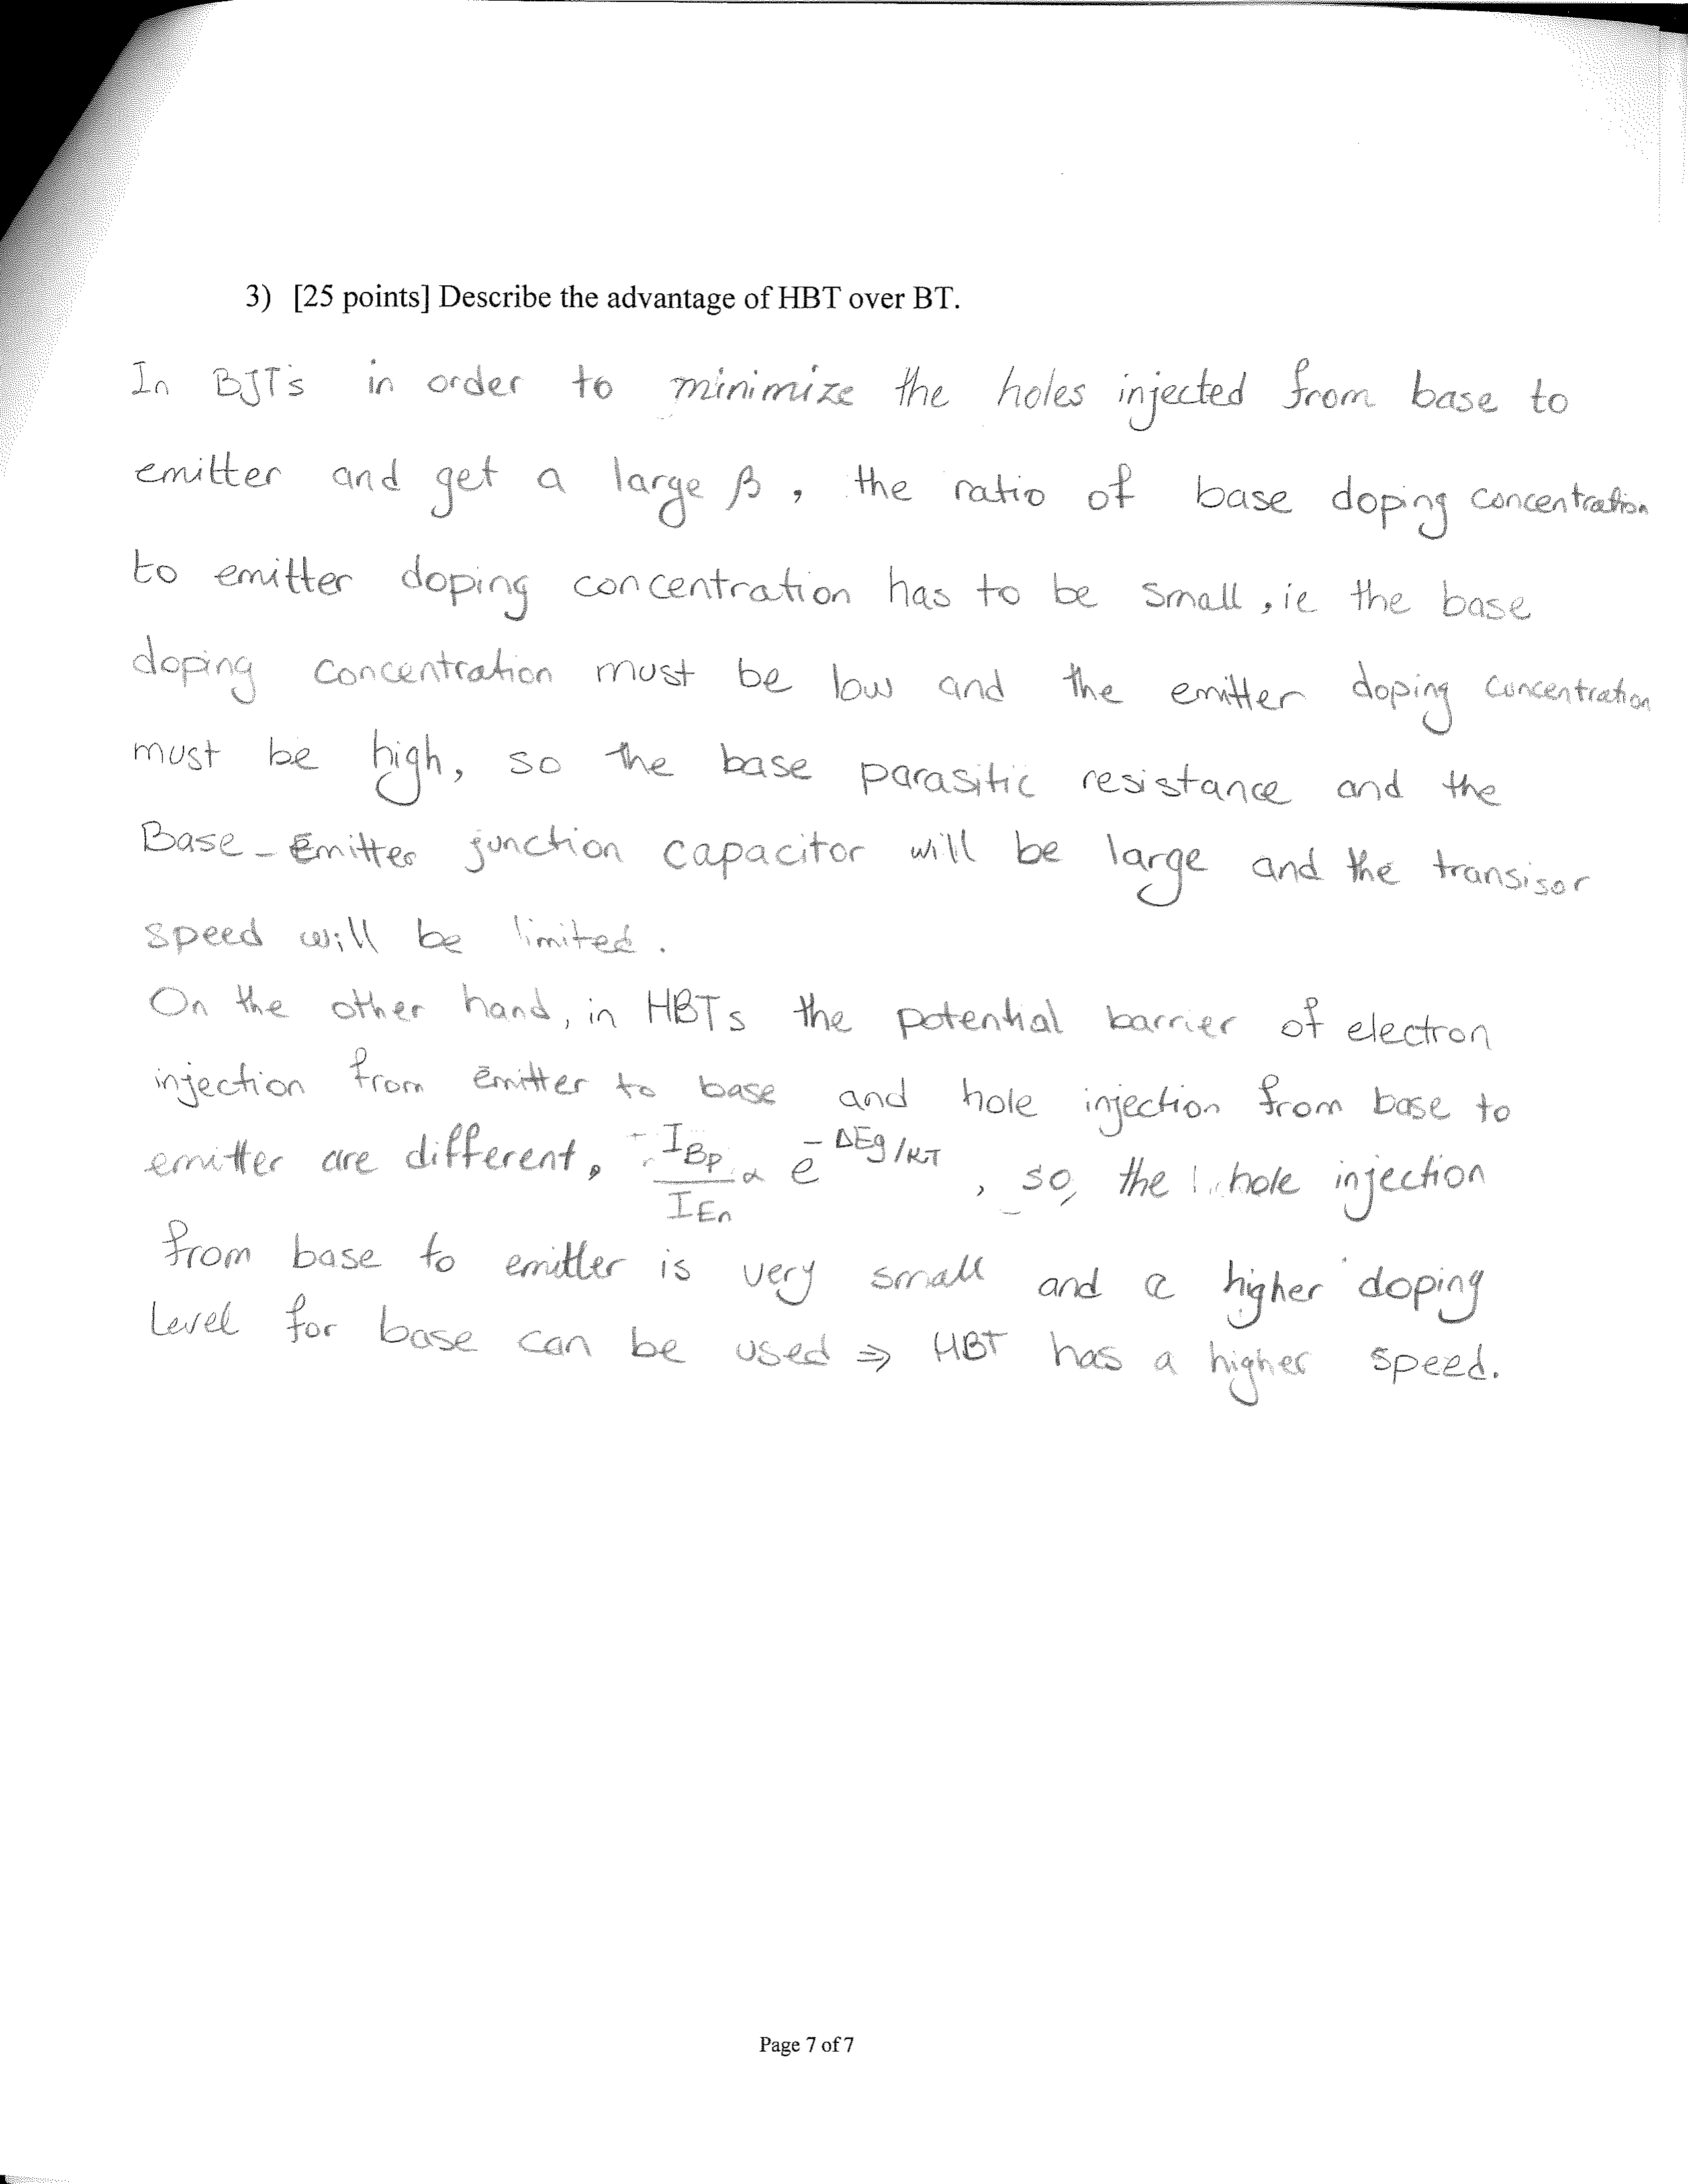 3) [25 points] Describe the advantage of HBT over BT.
In BJTs in order to minimize the holes injected from base to
emitter and get a large β, the ratio of base doping concentration
to emitter doping concentration has to be small, ie the base
doping concentration must be low and the emitter doping concentration
must be high, so the base parasitic resistance and the
Base-Emitter junction capacitor will be large and the transisor
speed will be limited.
On the other hand, in HBTs the potential barrier of electron
injection from emitter to base and hole injection from base to
emitter are different, I_Bp/I_En ∝ e^(-ΔEg/KT), so, the hole injection
from base to emitter is very small and a higher doping
level for base can be used ⇒ HBT has a higher speed.
Page 7 of 7